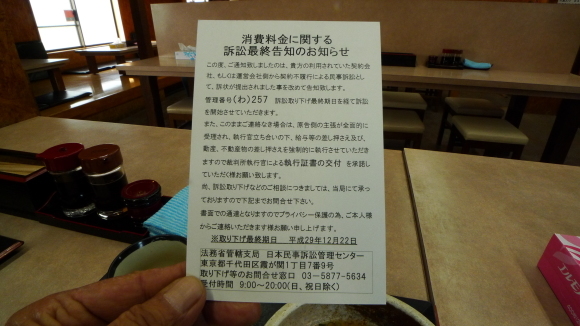 消費料金に関する
訴訟最終告知のお知らせ
この度、ご通知致しましたのは、貴方の利用されていた契約会
社、もしくは運営会社側から契約不履行による民事訴訟とし
て、訴状が提出されました事を改めて告知致します。
管理番号(わ)257 訴訟取り下げ最終期日を経て訴訟
を開始させていただきます。
また、このままご連絡なき場合は、原告側の主張が全面的に
受理され、執行官立ち合いの下、給与等の差し押さえ及び、
動産、不動産物の差し押さえを強制的に執行させていただき
ますので裁判所執行官による執行証書の交付 を承諾し
ていただく様お願い致します。
尚、訴訟取り下げなどのご相談につきましては、当局にて承っ
ておりますので下記までお問合せ下さい。
書面での通達となりますのでプライバシー保護の為、ご本人様
からご連絡いただきます様お願い申し上げます。
※取り下げ最終期日 平成29年12月22日
法務省管轄支局 日本民事訴訟管理センター
東京都千代田区霞が関1丁目7番9号
取り下げ等のお問合せ窓口 03-5877-5634
受付時間 9:00~20:00(日、祝日除く)
エルモ